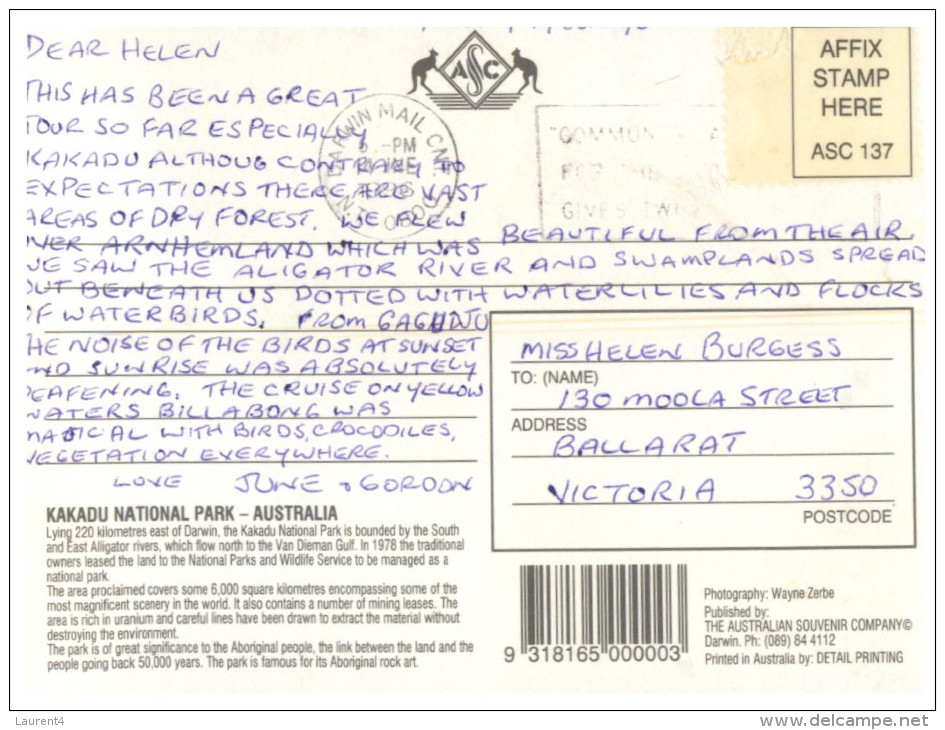 DEAR HELEN
THIS HAS BEEN A GREAT
TOUR SO FAR ESPECIALLY
KAKADU ALTHOUG CONTRARY TO
EXPECTATIONS THERE ARE VAST
AREAS OF DRY FOREST. WE FLEW
OVER ARNHEMLAND WHICH WAS BEAUTIFUL FROM THE AIR.
WE SAW THE ALIGATOR RIVER AND SWAMPLANDS SPREAD
OUT BENEATH US DOTTED WITH WATERLILIES AND FLOCKS
OF WATERBIRDS. FROM GAGUDJU
THE NOISE OF THE BIRDS AT SUNSET
AND SUNRISE WAS ABSOLUTELY
DEAFENING. THE CRUISE ON YELLOW
WATERS BILLABONG WAS
MAGICAL WITH BIRDS, CROCODILES,
VEGETATION EVERYWHERE.
LOVE JUNE & GORDON
ASC
DARWIN MAIL CN
-PM
JNE
NT 0800
"COMMUN
GIVES TWI
AFFIX
STAMP
HERE
ASC 137
MISS HELEN BURGESS
TO: (NAME)
130 MOOLA STREET
ADDRESS
BALLARAT
VICTORIA 3350
POSTCODE
KAKADU NATIONAL PARK – AUSTRALIA
Lying 220 kilometres east of Darwin, the Kakadu National Park is bounded by the South
and East Alligator rivers, which flow north to the Van Dieman Gulf. In 1978 the traditional
owners leased the land to the National Parks and Wildlife Service to be managed as a
national park.
The area proclaimed covers some 6,000 square kilometres encompassing some of the
most magnificent scenery in the world. It also contains a number of mining leases. The
area is rich in uranium and careful lines have been drawn to extract the material without
destroying the environment.
The park is of great significance to the Aboriginal people, the link between the land and the
people going back 50,000 years. The park is famous for its Aboriginal rock art.
9 318165 000003
Photography: Wayne Zerbe
Published by:
THE AUSTRALIAN SOUVENIR COMPANY©
Darwin. Ph: (089) 84 4112
Printed in Australia by: DETAIL PRINTING
Laurent4
www.delcampe.net